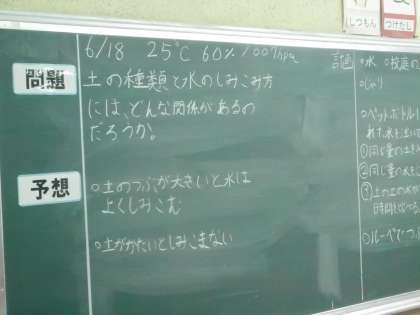 しつもん
つけたし
6/18 25℃ 60% 1007hpa
問題
土の種類と水のしみこみ方
には、どんな関係があるの
だろうか。
予想
○土のつぶが大きいと水は
よくしみこむ
○土がかたいとしみこまない
計画
○水 ○校庭の
○じゃり
○ペットボトル
れた水を土に
①同じ量の土を
②同じ量の水を
③上の土の水
時間を比べる
○ルーペでつ